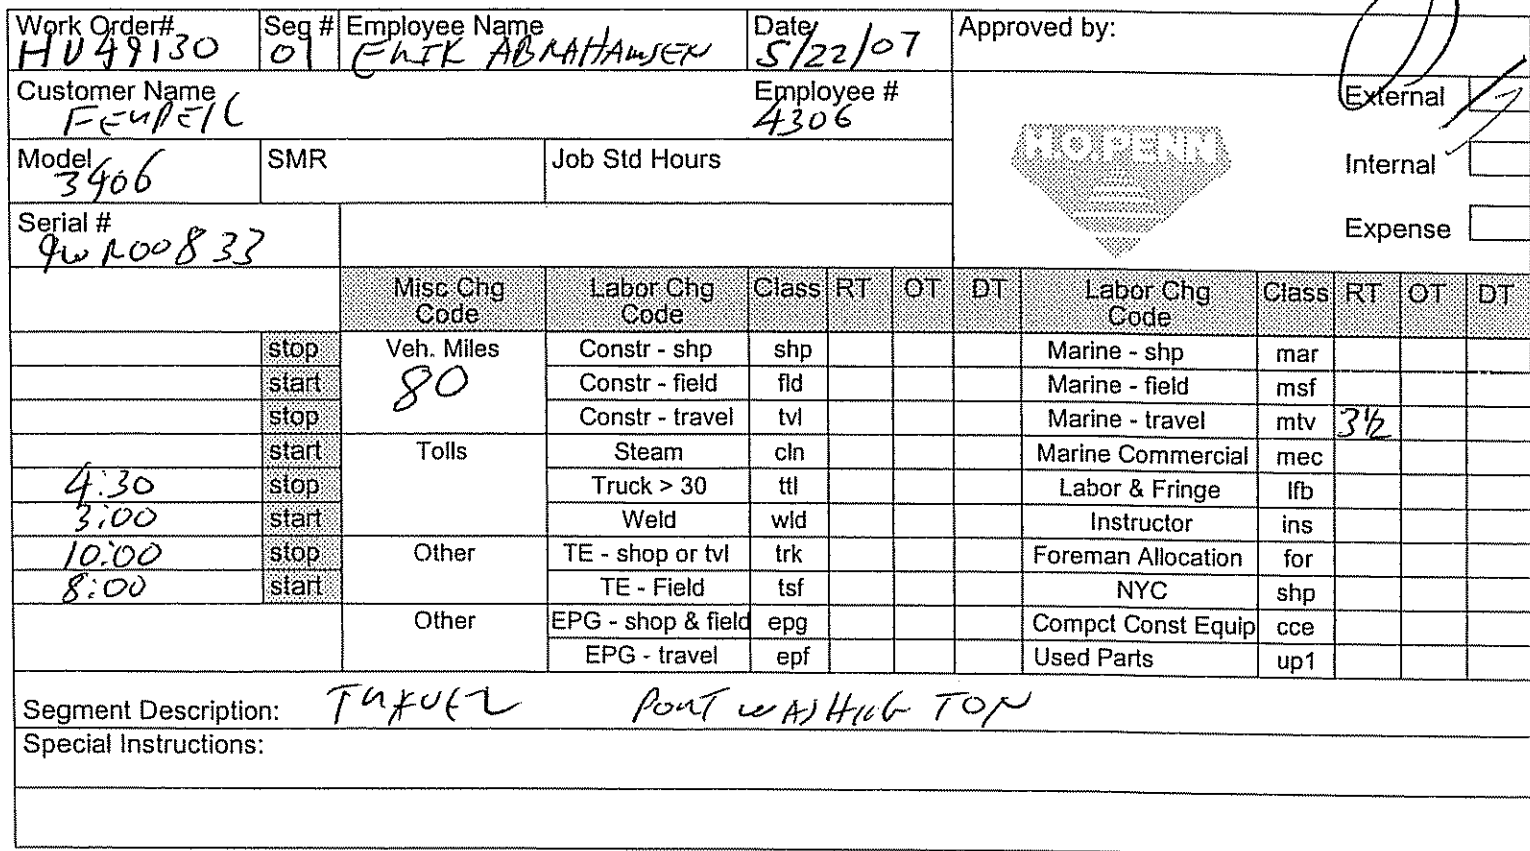 Work Order# Seg # Employee Name Date Approved by:
HU49130 01 ERIK ABRAHAMSEN 5/22/07
Customer Name Employee # External
4306
Model SMR Job Std Hours H.O.PENN Internal
3406
Serial # Expense
9WR00833
Misc Chg Code Labor Chg Code Class RT OT DT Labor Chg Code Class RT OT DT
stop Veh. Miles Constr - shp shp Marine - shp mar
start 80 Constr - field fld Marine - field msf
stop Constr - travel tvl Marine - travel mtv 3 1/2
start Tolls Steam cln Marine Commercial mec
4:30 stop Truck > 30 ttl Labor & Fringe lfb
3:00 start Weld wld Instructor ins
10:00 stop Other TE - shop or tvl trk Foreman Allocation for
8:00 start TE - Field tsf NYC shp
Other EPG - shop & field epg Compct Const Equip cce
EPG - travel epf Used Parts up1
Segment Description: TRAVEL PORT WASHINGTON
Special Instructions: